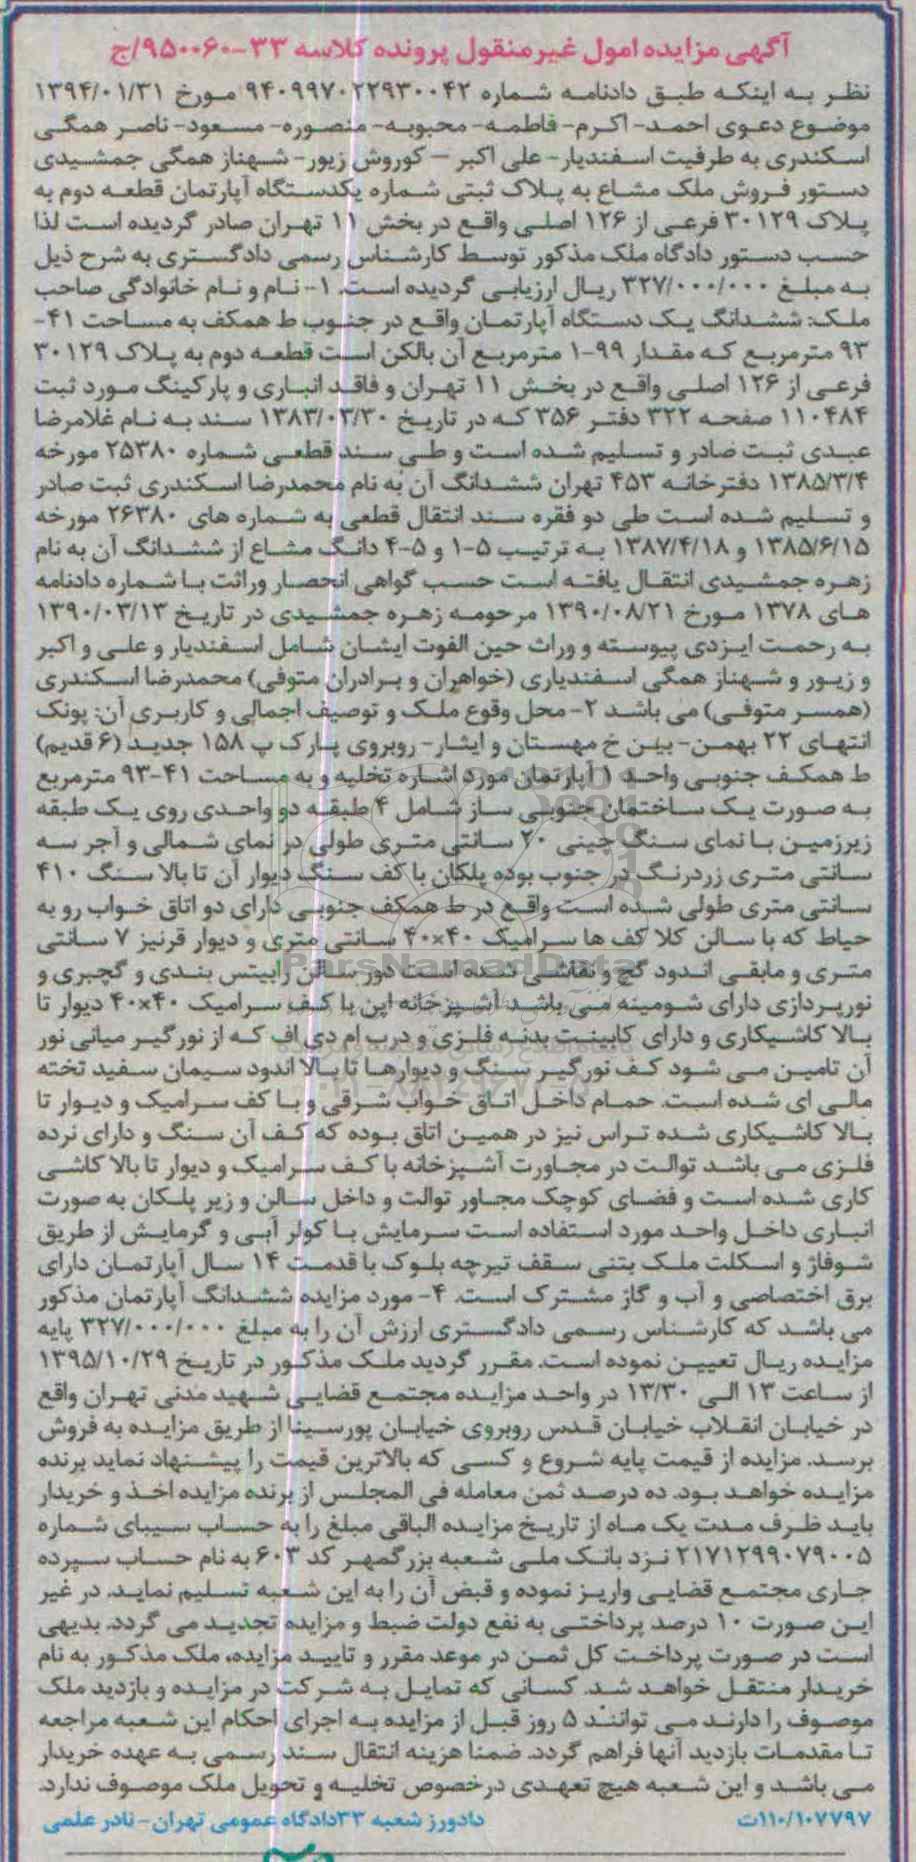 آگهی مزایده اموال غیرمنقول پرونده کلاسه ۳۳-۹۵۰۰۶۰/ج
نظر به اینکه طبق دادنامه شماره ۹۴۰۹۹۷۰۲۲۹۳۰۰۰۴۲ مورخ ۱۳۹۴/۰۱/۳۱
موضوع دعوی احمد- اکرم- فاطمه- محبوبه- منصوره- مسعود- ناصر همگی
اسکندری به طرفیت اسفندیار- علی اکبر – کوروش زیور- شهناز همگی جمشیدی
دستور فروش ملک مشاع به پلاک ثبتی شماره یکدستگاه آپارتمان قطعه دوم به
پلاک ۳۰۱۲۹ فرعی از ۱۲۶ اصلی واقع در بخش ۱۱ تهران صادر گردیده است لذا
حسب دستور دادگاه ملک مذکور توسط کارشناس رسمی دادگستری به شرح ذیل
به مبلغ ۳۲۷/۰۰۰/۰۰۰ ریال ارزیابی گردیده است. ۱- نام و نام خانوادگی صاحب
ملک: ششدانگ یک دستگاه آپارتمان واقع در جنوب ط همکف به مساحت ۴۱-
۹۳ مترمربع که مقدار ۹۹-۱ مترمربع آن بالکن است قطعه دوم به پلاک ۳۰۱۲۹
فرعی از ۱۲۶ اصلی واقع در بخش ۱۱ تهران و فاقد انباری و پارکینگ مورد ثبت
۱۱۰۴۸۴ صفحه ۳۲۲ دفتر ۳۵۶ که در تاریخ ۱۳۸۳/۰۳/۳۰ سند به نام غلامرضا
عبدی ثبت صادر و تسلیم شده است و طی سند قطعی شماره ۲۵۳۸۰ مورخه
۱۳۸۵/۳/۴ دفترخانه ۴۵۳ تهران ششدانگ آن به نام محمدرضا اسکندری ثبت صادر
و تسلیم شده است طی دو فقره سند انتقال قطعی به شماره های ۲۶۳۸۰ مورخه
۱۳۸۵/۶/۱۵ و ۱۳۸۷/۴/۱۸ به ترتیب ۵-۱ و ۵-۴ دانگ مشاع از ششدانگ آن به نام
زهره جمشیدی انتقال یافته است حسب گواهی انحصار وراثت با شماره دادنامه
های ۱۳۷۸ مورخ ۱۳۹۰/۰۸/۲۱ مرحومه زهره جمشیدی در تاریخ ۱۳۹۰/۰۳/۱۳
به رحمت ایزدی پیوسته و وراث حین الفوت ایشان شامل اسفندیار و علی و اکبر
و زیور و شهناز همگی اسفندیاری (خواهران و برادران متوفی) محمدرضا اسکندری
(همسر متوفی) می باشد ۲- محل وقوع ملک و توصیف اجمالی و کاربری آن: پونک
انتهای ۲۲ بهمن- بین خ مهستان و ایثار- روبروی پارک پ ۱۵۸ جدید (۶ قدیم)
ط همکف جنوبی واحد ۱ آپارتمان مورد اشاره تخلیه و به مساحت ۴۱-۹۳ مترمربع
به صورت یک ساختمان جنوبی ساز شامل ۴ طبقه دو واحدی روی یک طبقه
زیرزمین با نمای سنگ چینی ۲۰ سانتی متری طولی در نمای شمالی و آجر سه
سانتی متری زردرنگ در جنوب بوده پلکان با کف سنگ دیوار آن تا بالا سنگ ۴۱۰
سانتی متری طولی شده است واقع در ط همکف جنوبی دارای دو اتاق خواب رو به
حیاط که با سالن کلا کف ها سرامیک ۴۰×۴۰ سانتی متری و دیوار قرنیز ۷ سانتی
متری و مابقی اندود گچ و نقاشی شده است دور سالن رابیتس بندی و گچبری و
نورپردازی دارای شومینه می باشد آشپزخانه اپن با کف سرامیک ۴۰×۴۰ دیوار تا
بالا کاشیکاری و دارای کابینت بدنه فلزی و درب ام دی اف که از نورگیر میانی نور
آن تامین می شود کف نورگیر سنگ و دیوارها تا بالا اندود سیمان سفید تخته
مالی ای شده است. حمام داخل اتاق خواب شرقی و با کف سرامیک و دیوار تا
بالا کاشیکاری شده تراس نیز در همین اتاق بوده که کف آن سنگ و دارای نرده
فلزی می باشد توالت در مجاورت آشپزخانه با کف سرامیک و دیوار تا بالا کاشی
کاری شده است و فضای کوچک مجاور توالت و داخل سالن و زیر پلکان به صورت
انباری داخل واحد مورد استفاده است سرمایش با کولر آبی و گرمایش از طریق
شوفاژ و اسکلت ملک بتنی سقف تیرچه بلوک با قدمت ۱۴ سال آپارتمان دارای
برق اختصاصی و آب و گاز مشترک است. ۴- مورد مزایده ششدانگ آپارتمان مذکور
می باشد که کارشناس رسمی دادگستری ارزش آن را به مبلغ ۳۲۷/۰۰۰/۰۰۰ پایه
مزایده ریال تعیین نموده است. مقرر گردید ملک مذکور در تاریخ ۱۳۹۵/۱۰/۲۹
از ساعت ۱۳ الی ۱۳/۳۰ در واحد مزایده مجتمع قضایی شهید مدنی تهران واقع
در خیابان انقلاب خیابان قدس روبروی خیابان پورسینا از طریق مزایده به فروش
برسد. مزایده از قیمت پایه شروع و کسی که بالاترین قیمت را پیشنهاد نماید برنده
مزایده خواهد بود. ده درصد ثمن معامله فی المجلس از برنده مزایده اخذ و خریدار
باید ظرف مدت یک ماه از تاریخ مزایده الباقی مبلغ را به حساب سیبای شماره
۲۱۷۱۲۹۹۰۷۹۰۰۵ نزد بانک ملی شعبه بزرگمهر کد ۶۰۳ به نام حساب سپرده
جاری مجتمع قضایی واریز نموده و قبض آن را به این شعبه تسلیم نماید. در غیر
این صورت ۱۰ درصد پرداختی به نفع دولت ضبط و مزایده تجدید می گردد. بدیهی
است در صورت پرداخت کل ثمن در موعد مقرر و تایید مزایده، ملک مذکور به نام
خریدار منتقل خواهد شد. کسانی که تمایل به شرکت در مزایده و بازدید ملک
موصوف را دارند می توانند ۵ روز قبل از مزایده به اجرای احکام این شعبه مراجعه
تا مقدمات بازدید آنها فراهم گردد. ضمنا هزینه انتقال سند رسمی به عهده خریدار
می باشد و این شعبه هیچ تعهدی درخصوص تخلیه و تحویل ملک موصوف ندارد.
۱۱۰/۱۰۷۷۹۷ت دادورز شعبه ۳۳دادگاه عمومی تهران- نادر علمی
ParsNamadData